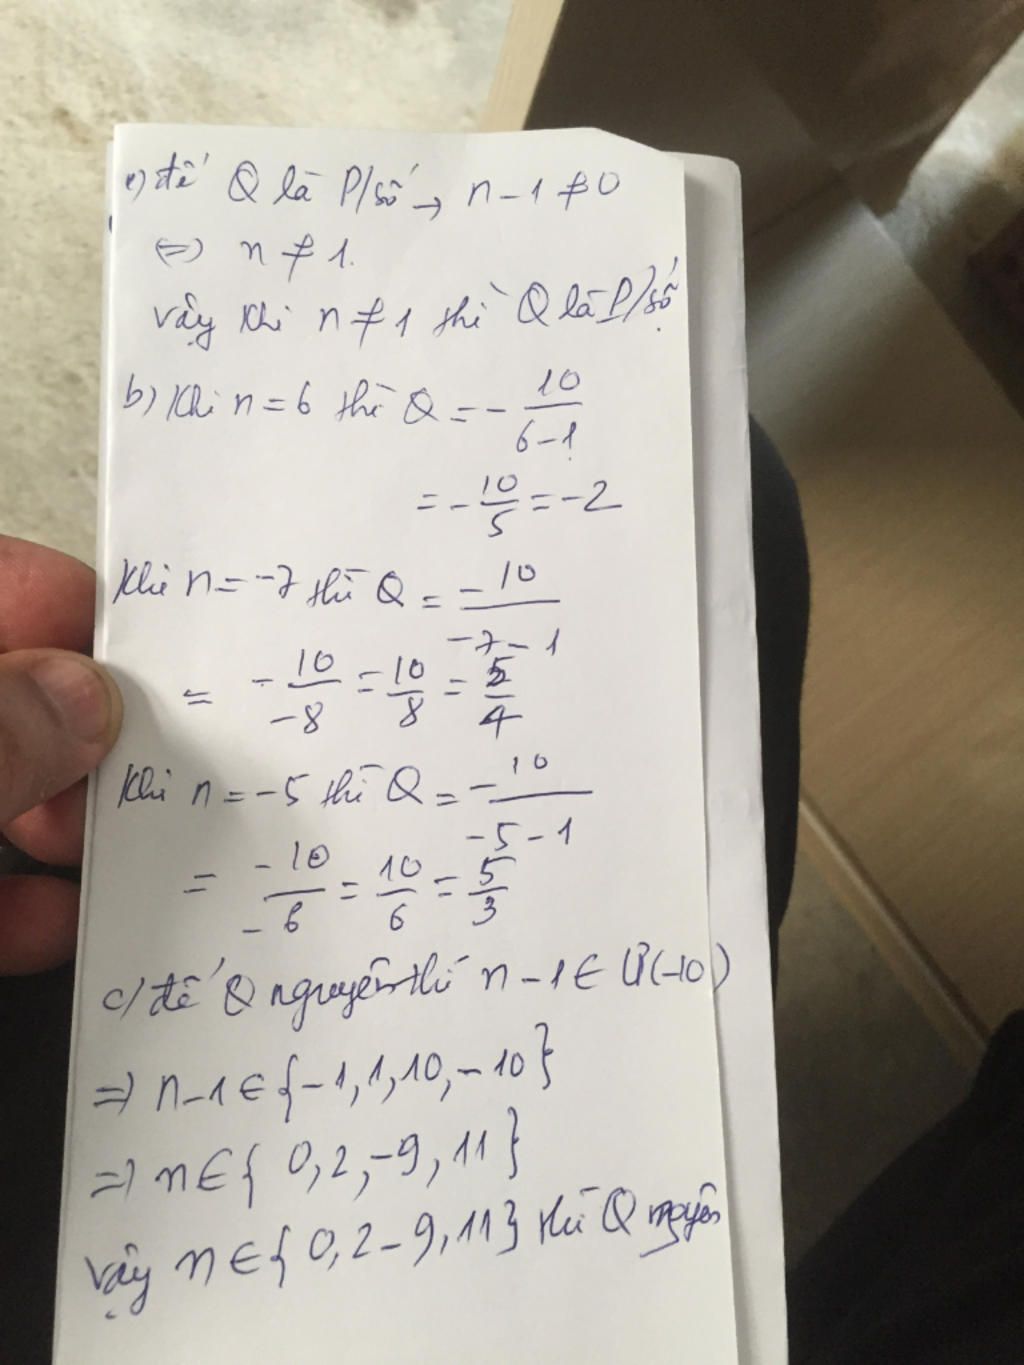 a) để Q là P/số → n - 1 ≠ 0
⇔ n ≠ 1.
vậy khi n ≠ 1 thì Q là P/số
b) Khi n = 6 thì Q = - 10/(6-1)
= - 10/5 = -2
Khi n = -7 thì Q = -10/(-7-1)
= -10/-8 = 10/8 = 5/4
Khi n = -5 thì Q = -10/(-5-1)
= -10/-6 = 10/6 = 5/3
c) để Q nguyên thì n - 1 ∈ Ư(-10)
⇒ n-1 ∈ {-1, 1, 10, -10}
⇒ n ∈ { 0, 2, -9, 11}
vậy n ∈ { 0, 2 -9, 11} thì Q nguyên